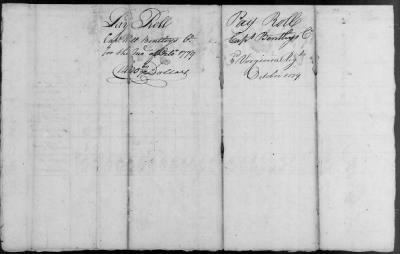 Pay Roll
Capt Wm Bentleys Co
for the 1779
Dollars
Pay Roll
Capt Bentleys Co
3d Virginia Regt
October 1779